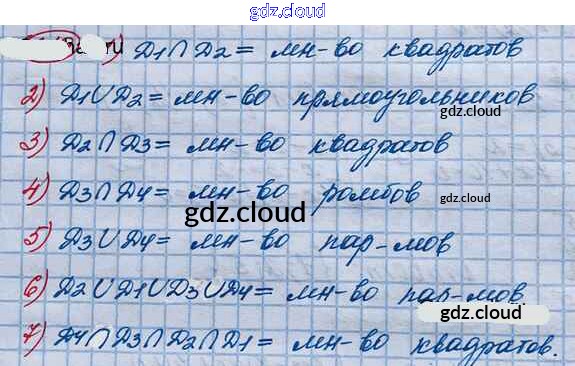 gdz.cloud
1) Д1∩Д2= мн-во квадратов
2) Д1∪Д2= мн-во прямоугольников
gdz.cloud
3) Д2∩Д3= мн-во квадратов
4) Д3∩Д4= мн-во ромбов
gdz.cloud
gdz.cloud
5) Д3∪Д4= мн-во пар-мов
6) Д2∪Д1∪Д3∪Д4= мн-во пар-мов.
gdz.cloud
7) Д4∩Д3∩Д2∩Д1= мн-во квадратов.